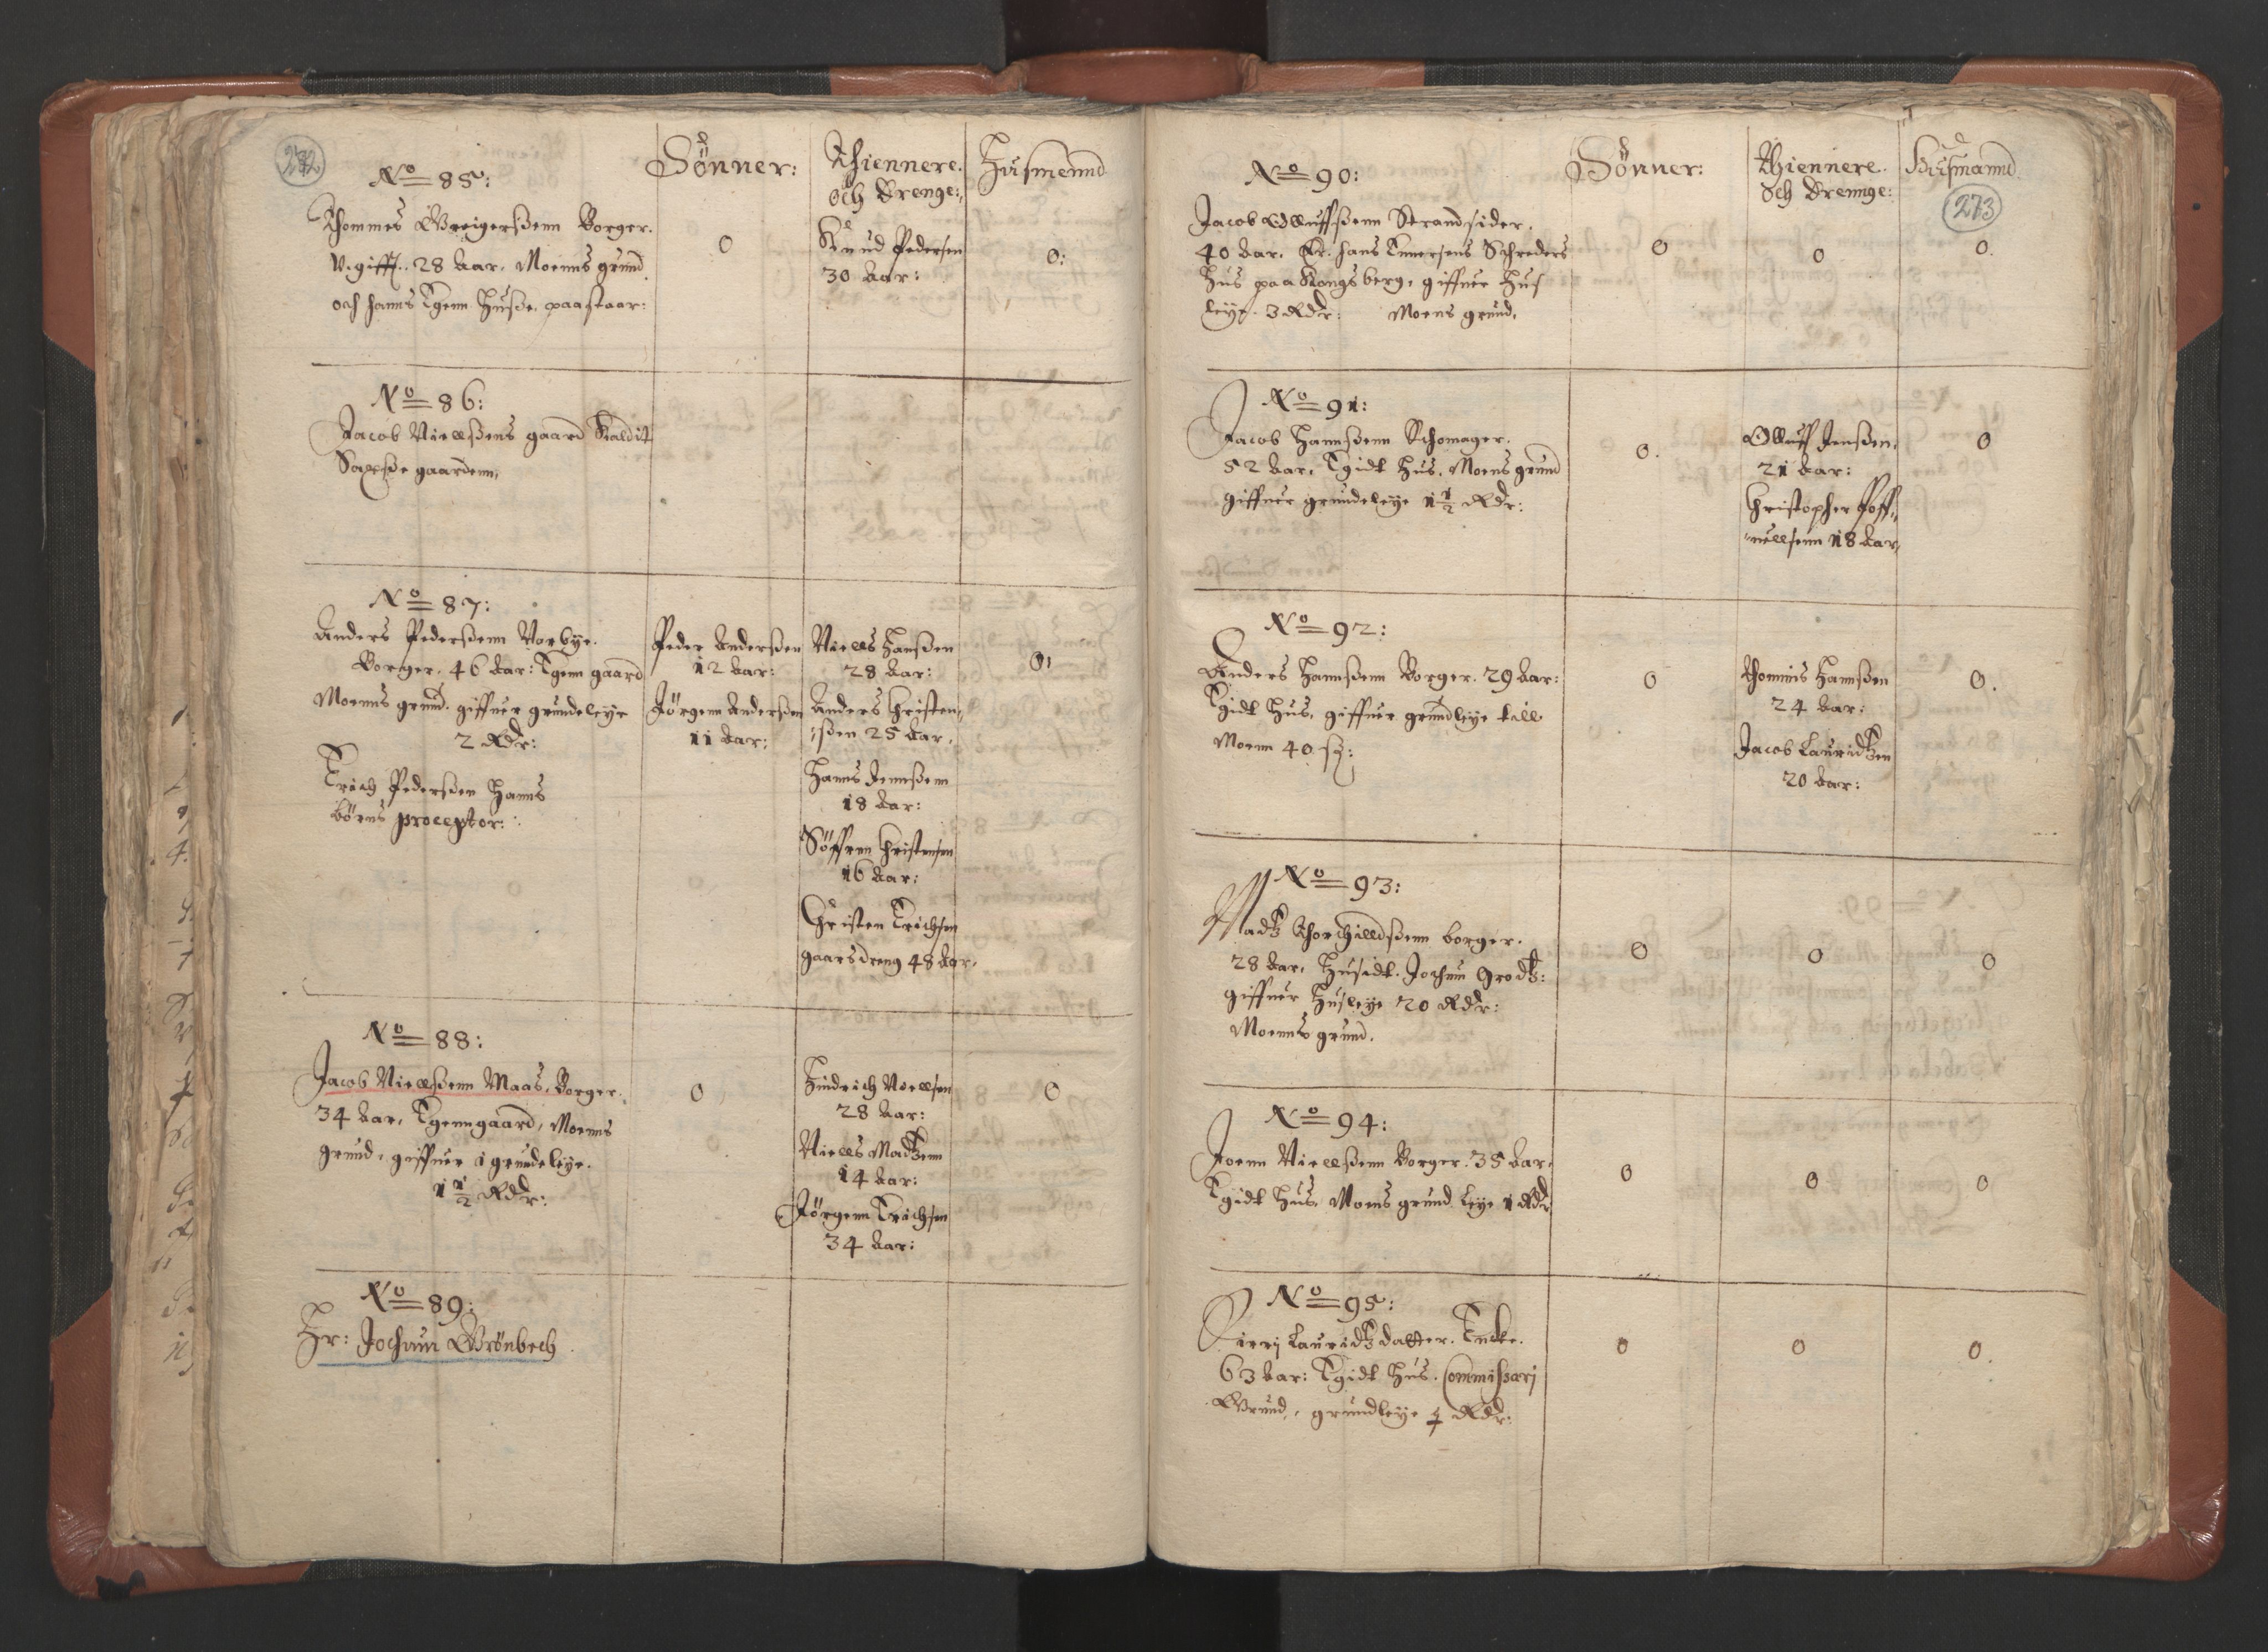 272
No 85:
Sönner:
Thiennere.
och Drenge:
Husmennd
Thommes Greigerßenn Borger.
V:gifft. 28 Aar. Moenns grund
och hanns Egenn Huße. paastaar:
0
Knud Pedersen
30 Aar:
0:
No 86:
Jacob Niellßens gaard Kaldit
gaardenn,
No 87:
Anders Pederßenn Norbye.
Borger. 46 Aar: Egenn gaard
Moenns grund. giffuer grundeleye
2 Rdr:
Erich Pederßen Hanns
börns proceptor:
Peder Anderßen
12 Aar:
Jörgenn Anderßen
11 Aar:
Niells Hanßen
28 Aar:
Anders Christen,
:ßen 25 Aar,
Hanns Jennßenn
18 Aar:
Söffren Christensen
16 Aar:
Christen Erichsen
gaarsdreng 48 Aar.
0:
No 88:
Jacob Niellßenn Maas. Borger.
34 Aar, Egenngaard, Moenns
grund, giffuer i grundeleye.
1 1/2 Rdr:
0
Hindrich Niellsen
28 Aar:
Niells Madtzenn
14 Aar:
Jörgenn Erichsen
34 Aar:
0
No 89:
Hr: Jochum Grönbech
No 90:
Sönner:
Thiennere.
och Drennge:
Husmannd
273
Jacob Olluffßenn Strandsider.
40 Aar. Er. Hans Enuersens Schreders
Hus paa Kongsberg, giffuer Hus
leye. 3 Rdr: Moens grund.
0
0
0.
No 91:
Jacob Hannßenn Schomager.
52 Aar. Egidt Hus. Moens grund
giffuer grundeleye 1 1/2 Rdr:
0.
Olluff Jenßen.
21 Aar:
Christopher Poff,,
,,uellsenn 18 Aar,
0
No 92:
Anders Hannßenn Borger. 29 Aar:
Egidt Hus. giffuer grundleye till
Moenn 40 sz:
0
Thommis Hannßen
24 Aar:
Jacob Lauridtzen
20 Aar:
0.
No 93:
Madtz Thorchilldßenn borger.
28 Aar. Husidt. Jochum Grodtz:
giffuer Husleye 20 Rdr:
Moenns grund.
0
0
0
No 94:
Joenn Niellßenn Borger. 35 Aar.
Egidt Hus. Moens grund leye 1 Rdr
0
0
0
No 95:
Sirri Lauridtzdatter. Encke.
63 Aar: Egidt Hus. Commissarj
Grund, grundleye 4 Rdr:
0
0
0.